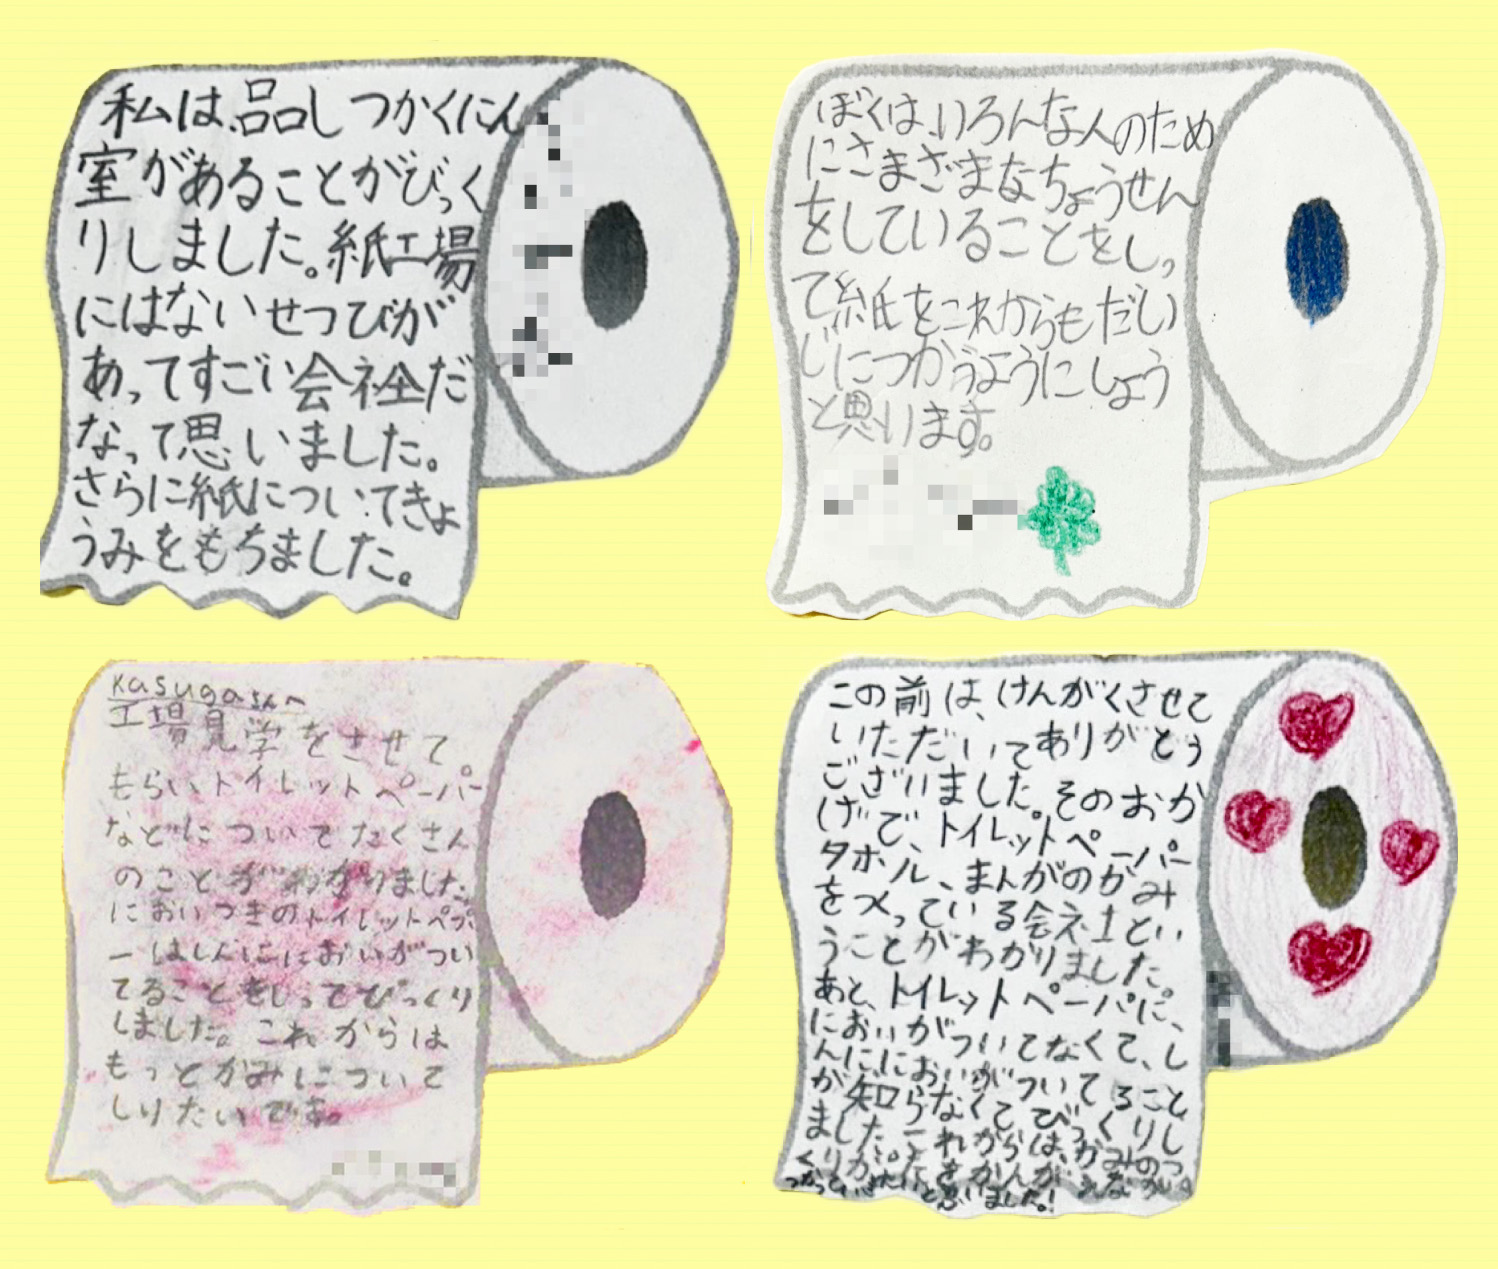 私は、品しつかくにん
室があることがびっく
りしました。紙工場
にはないせつびが
あってすごい会社だ
なって思いました。
さらに紙についてきょ
うみをもちました。
ぼくは、いろんな人のため
にさまざまなちょうせん
をしていることをしっ
て紙をこれからもだい
じにつかうようにしよう
と思います。
kasugaさんへ
工場見学をさせて。
もらい、トイレットペーパー
などについてたくさん
のことがわかりました。
においつきのトイレットペパ
ーはしんににおいがつい
てることをしってびっくり
しました。これからは
もっとかみについて
しりたいです。
この前は、けんがくさせて
いただいてありがとう
ございました。そのおか
げで、トイレットペーパー
タホル、まんがのがみ
をつくっている会社とい
うことがわかりました。
あと、トイレットペーパに、
においがついてなくて、し
んに、においがついてること
が知らなくてびっくりし
ました。これからは、かみのつ
くりか
と思いました!